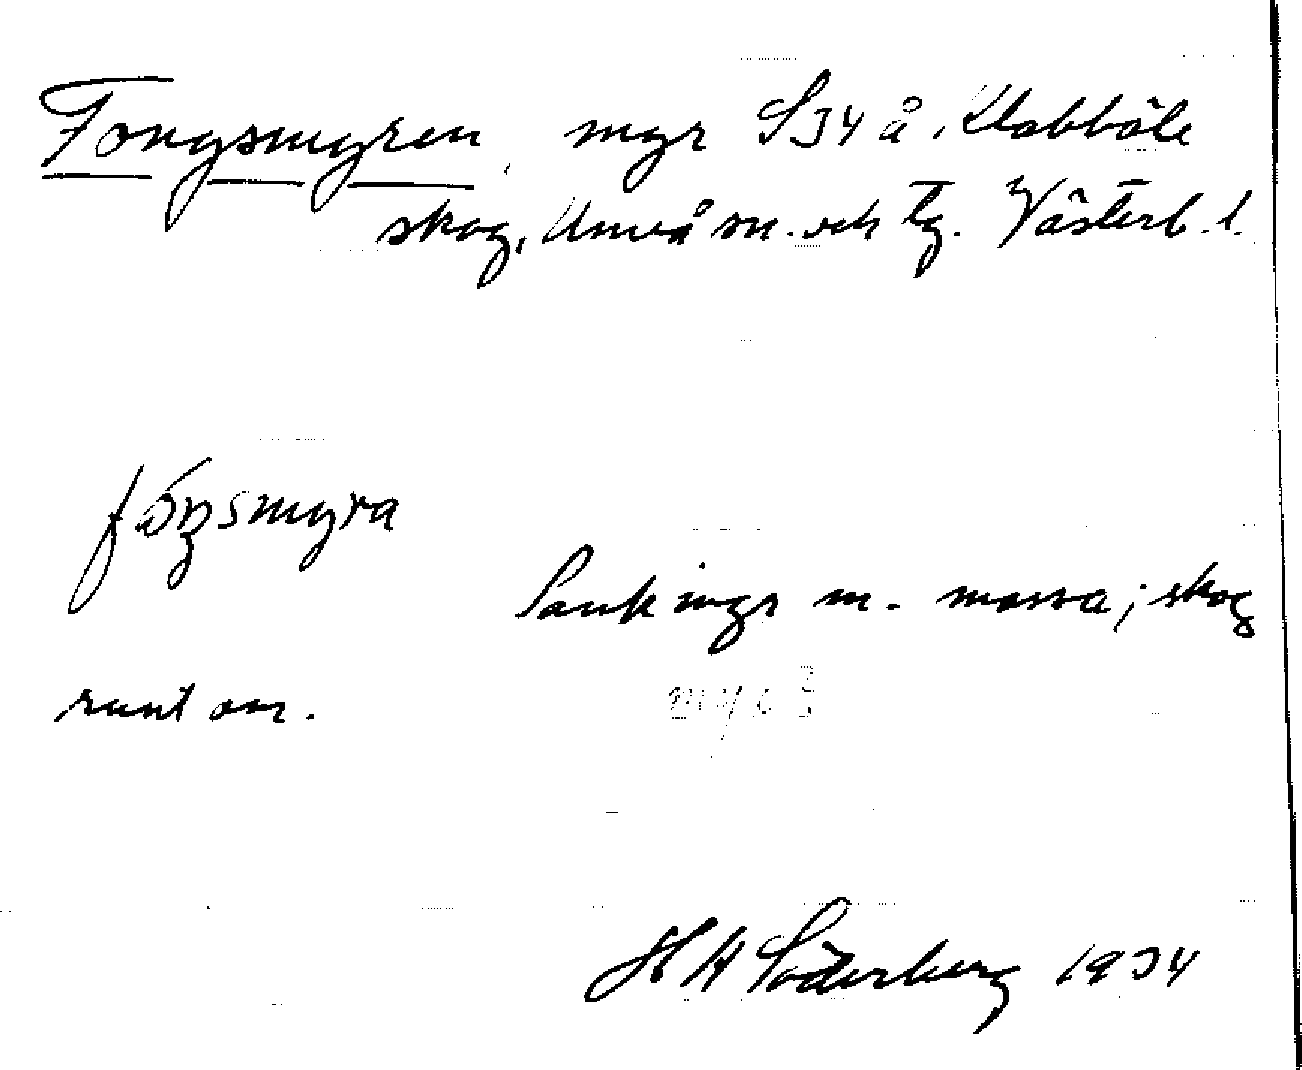 Fongsmyren, myr S34 å Klabböle
skog, Umeå sn. och tg. Västerb. l.
fòŋsmyra
Sank myr m. mossa; skog
runt om.
H H Söderberg 1934